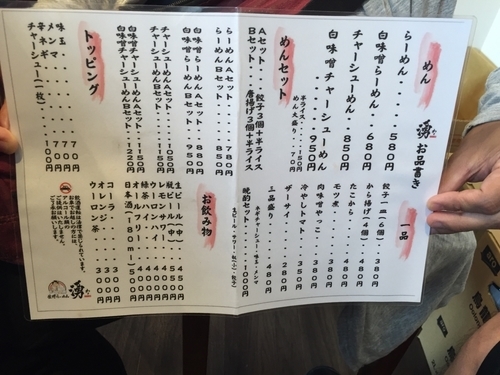 湧 お品書き
めん
らーめん・・・・・580円
白味噌らーめん・・・680円
チャーシューめん・・850円
白味噌チャーシューめん
・・・950円
半ライス・・・150円
めん大盛り・・・70円
めんセット
Aセット・・・餃子3個+半ライス
Bセット・・・唐揚げ3個+半ライス
らーめんAセット・・・780円
らーめんBセット・・・850円
白味噌らーめんAセット・・850円
白味噌らーめんBセット・・950円
チャーシューめんAセット・・1050円
チャーシューめんBセット・・1150円
白味噌チャーシューめんAセット・・1150円
白味噌チャーシューめんBセット・・1220円
トッピング
味玉・・・100円
メンマ・・・70円
辛ネギ・・・70円
チャーシュー(一枚)・・・100円
一品
餃子一皿(6個)・・380円
から揚げ(4個)・・380円
たこから・・・480円
モツ煮・・・480円
肉味噌やっこ・・・380円
冷やしトマト・・・350円
ザーサイ・・・280円
三品盛り・・・480円
ネギチャーシュー・味玉・メンマ
晩酌セット・・・1000円
お飲み物
生ビール(中)・・450円
瓶ビール(中)・・550円
レモンサワー・・400円
ウーロンハイ・・400円
緑茶ハイ・・400円
ハイボール・・400円
日本酒(180ml)・500円
コーラ・・・300円
オレンジ・・・300円
ウーロン茶・・・300円
湧